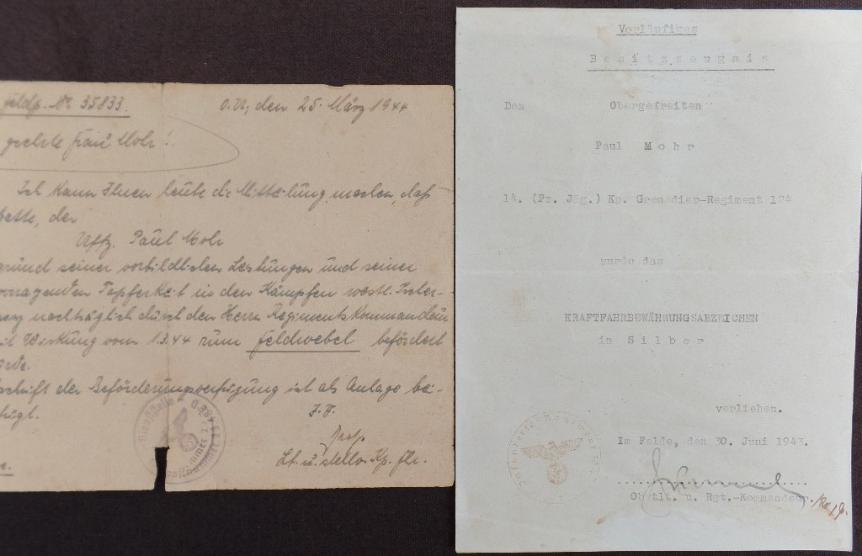 Feldp. Nr 35833. O.U., den 25. März 1944
geehrte Frau Mohr!
Ich kann Ihnen heute die Mitteilung machen, daß
der
Uffz. Paul Mohr
grund seiner vorbildlichen Leistungen und seiner
vorragenden Tapferkeit in den Kämpfen westl.
nachträglich durch den Herrn Regimentskommandeur
Wirkung vom 1.3.44 zum Feldwebel befördert
schrift der Beförderungsverfügung ist als Anlage be-
fügt. I.V.
Lt. u. stellv. Kp. Fhr.
Vorläufiges
Besitzzeugnis
Dem Obergefreiten
Paul Mohr
14. (Pz. Jäg.) Kp. Grenadier-Regiment
wurde das
KRAFTFAHRBEWÄHRUNGSABZEICHEN
in Silber
verliehen.
Im Felde, den 30. Juni 1943.
Obstlt. u. Rgt.-Kommandeur